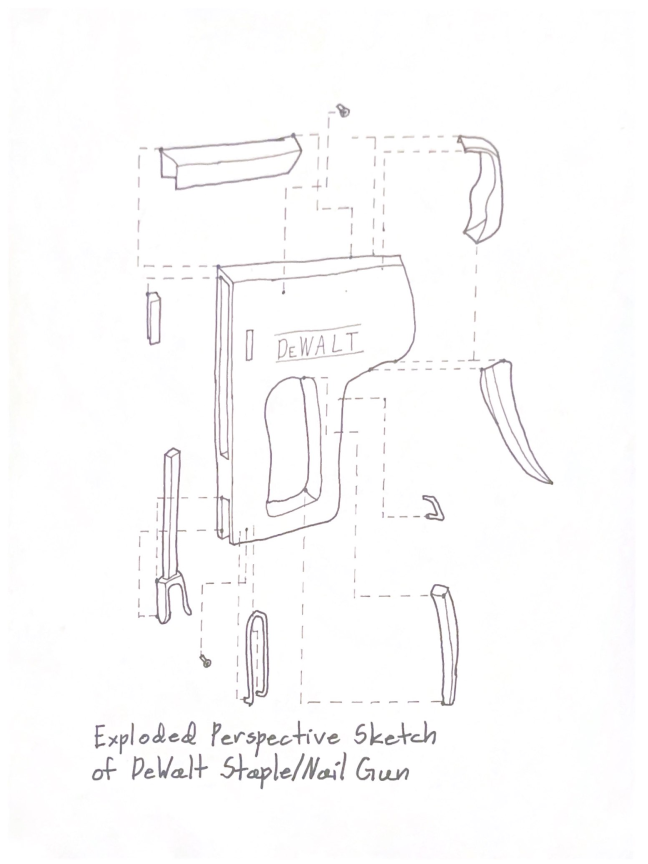 DeWALT
Exploded Perspective Sketch
of DeWalt Staple/Nail Gun